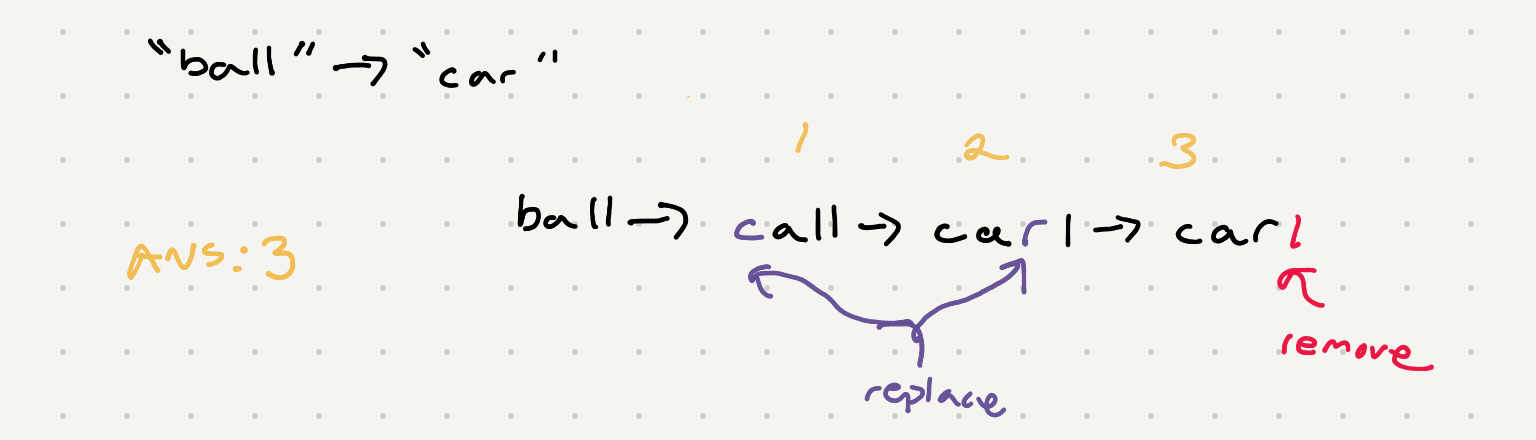 "ball" → "car"
1 2 3
ball → call → carl → carl
Ans: 3
replace
remove